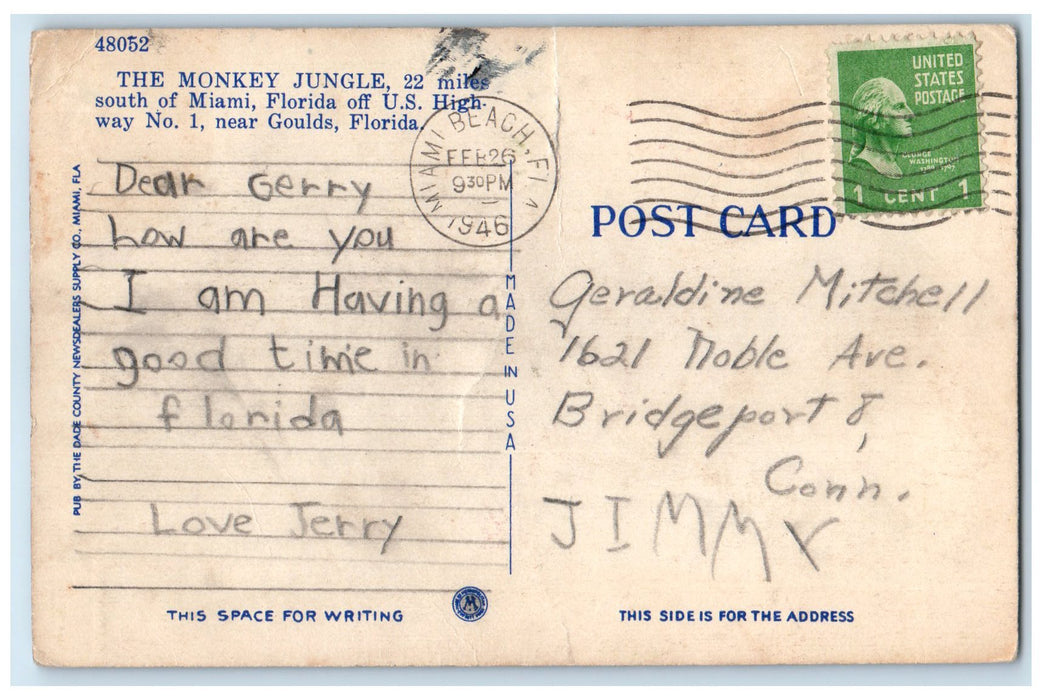 48052
THE MONKEY JUNGLE, 22 miles
south of Miami, Florida off U.S. High-
way No. 1, near Goulds, Florida.
MIAMI BEACH, FLA
FEB 26
9 30 PM
1946
UNITED
STATES
POSTAGE
GEORGE
WASHINGTON
1789-1797
1 CENT 1
POST CARD
PUB BY THE DADE COUNTY NEWSDEALERS SUPPLY CO., MIAMI, FLA
Dear Gerry
how are you
I am Having a
good time in
florida
Love Jerry
MADE IN USA
Geraldine Mitchell
1621 Noble Ave.
Bridgeport 8,
Conn.
JIMMY
THIS SPACE FOR WRITING
M
THIS SIDE IS FOR THE ADDRESS